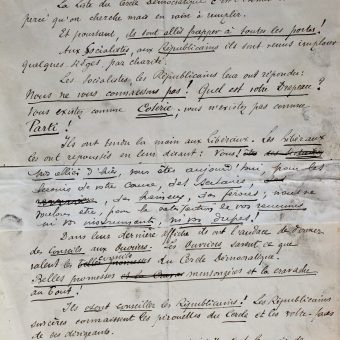 La liste du Cercle Démocratique
percé qu'on cherche mais en vain à remplir.
Et pourtant, ils sont allés frapper à toutes les portes!
Aux Socialistes, aux Républicains ils sont venus implorer
quelques sièges, par charité.
Les Socialistes, les Républicains leur ont répondu:
Nous ne vous connaissons pas! Quel est votre Drapeau?
Vous existez comme Coterie, vous n'existez pas comme
Parti!
Ils ont tendu la main aux Libéraux. Les Libéraux
les ont repoussés en leur disant: Vous!
nos alliés d'hier, vous êtes aujourd'hui, pour les
besoins de votre cause, des
des haineux, des nous ne
voulons être, pour la satisfaction de vos rancunes,
ni vos instruments, ni vos dupes!
Dans leur dernière affiche ils ont l'audace de donner
des Conseils aux Ouvriers. Les Ouvriers savent ce que
valent les conseils du Cercle Démocratique.
Belles promesses mensongères et la cravache
au bout!
Ils osent conseiller les Républicains! Les Républicains
sincères connaissent les pirouettes du Cercle et les
de ses dirigeants.